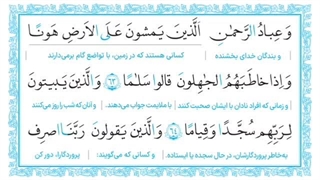 وَ عِبادُ الرَّحمٰنِ الَّذينَ يَمشونَ عَلَى الاَرضِ هَونًا
و بندگان خدای بخشنده کسانی هستند که در زمین، با تواضع گام برمی‌دارند
وَ اِذا خاطَبَهُمُ الجٰهِلونَ قالوا سَلٰمًا ﴿٦٣﴾ وَالَّذينَ يَبيتونَ
و زمانی که افراد نادان با ایشان صحبت کنند با ملایمت جواب می‌دهند و آنان که شب را روز می‌کنند
لِرَبِّهِم سُجَّدًا وَ قِيامًا ﴿٦٤﴾ وَالَّذينَ يَقولونَ رَبَّنَا اصرِف
به‌خاطر پروردگارشان، در حال سجده یا ایستاده. و کسانی که می‌گویند: پروردگارا، دور کن